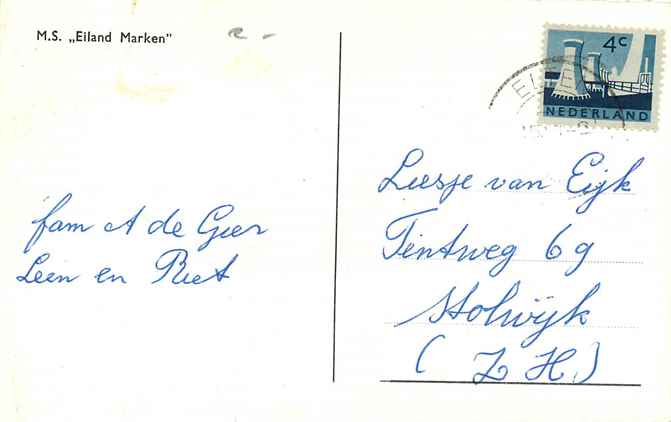 M.S. „Eiland Marken"
4c
NEDERLAND
fam A de Geer
Leen en Riet
Liesje van Eijk
Tentweg 69
Stolwijk
(Z H.)